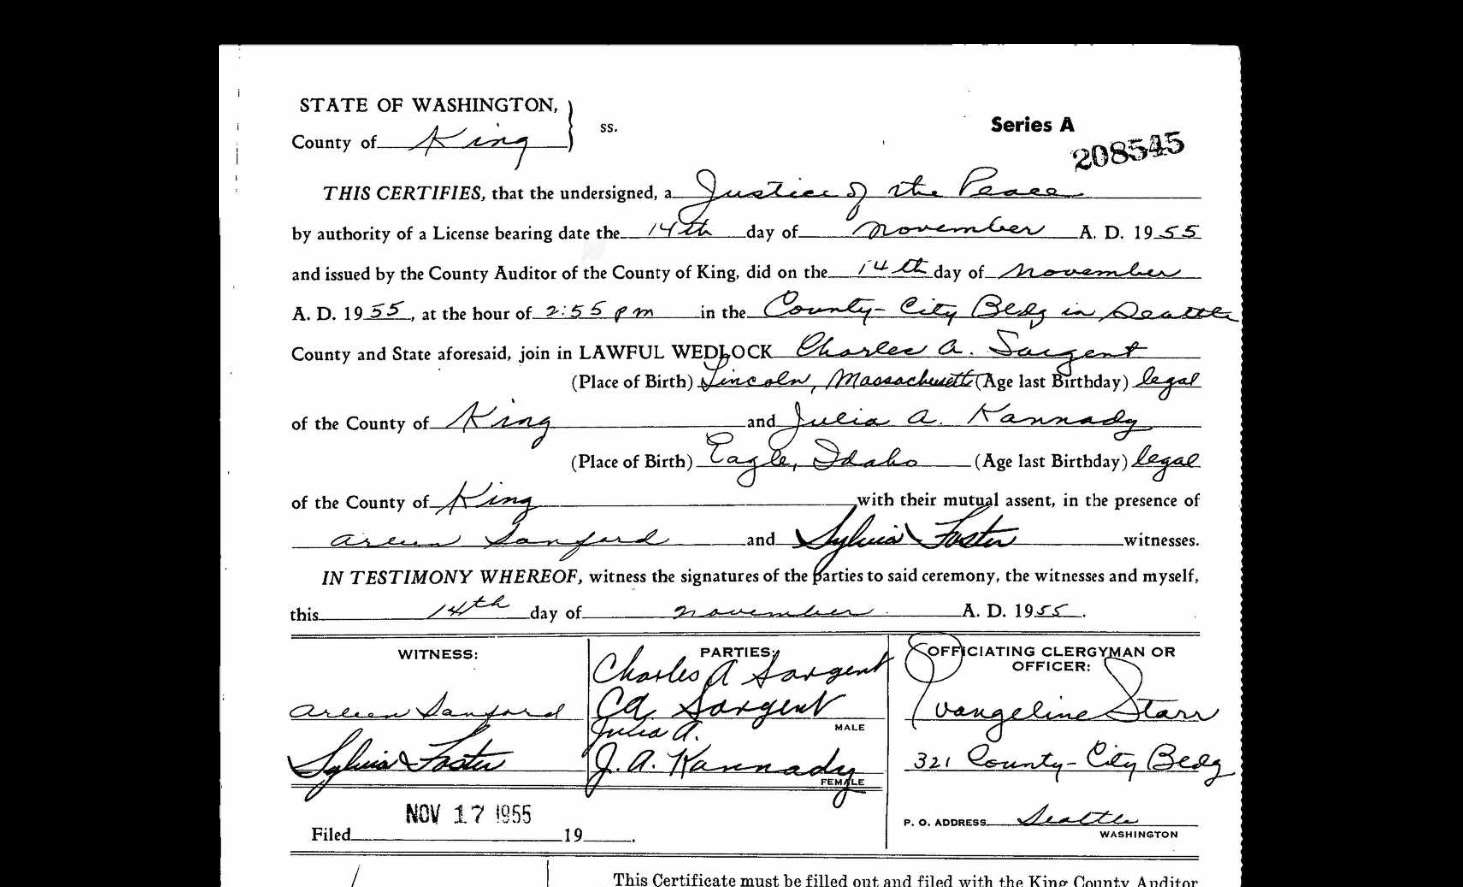 STATE OF WASHINGTON,
County of King ss.
Series A
208545
THIS CERTIFIES, that the undersigned, a Justice of the Peace
by authority of a License bearing date the 14th day of November A. D. 1955
and issued by the County Auditor of the County of King, did on the 14th day of November
A. D. 1955, at the hour of 2:55 pm in the County-City Bldg in Seattle
County and State aforesaid, join in LAWFUL WEDLOCK Charles A. Sargent
(Place of Birth) Lincoln, Massachusetts (Age last Birthday) legal
of the County of King and Julia A. Kannady
(Place of Birth) Eagle, Idaho (Age last Birthday) legal
of the County of King with their mutual assent, in the presence of
Arleen Sanford and Sylvia Foster witnesses.
IN TESTIMONY WHEREOF, witness the signatures of the parties to said ceremony, the witnesses and myself,
this 14th day of November A. D. 1955.
WITNESS:
Arleen Sanford
Sylvia Foster
PARTIES:
Charles A Sargent
CA Sargent
MALE
Julia A.
J. A. Kannady
FEMALE
OFFICIATING CLERGYMAN OR
OFFICER:
Evangeline Starr
321 County-City Bldg
P. O. ADDRESS Seattle
WASHINGTON
NOV 17 1955
Filed 19 .
This Certificate must be filled out and filed with the King County Auditor